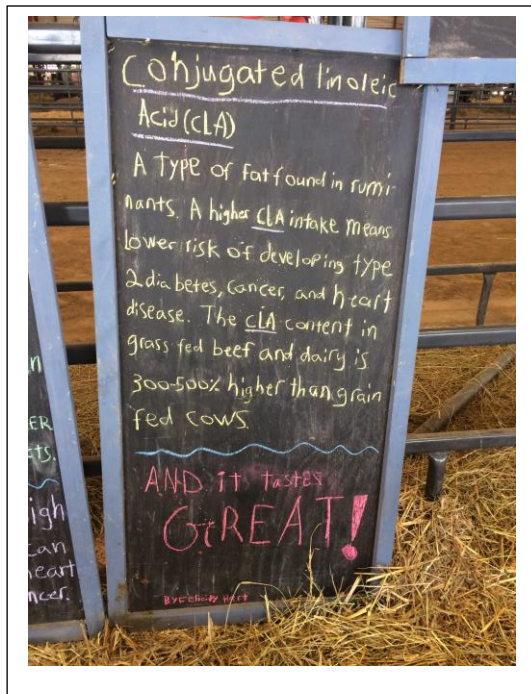 Conjugated linoleic
Acid (CLA)
A type of Fat found in rumi-
nants. A higher CLA intake means
lower risk of developing type
2 diabetes, cancer, and heart
disease. The CLA content in
grass fed beef and dairy is
300-500% higher than grain
fed cows
AND it tastes
GREAT!
By Felicity Hart
ER
ts
igh
can
heart
ncer.